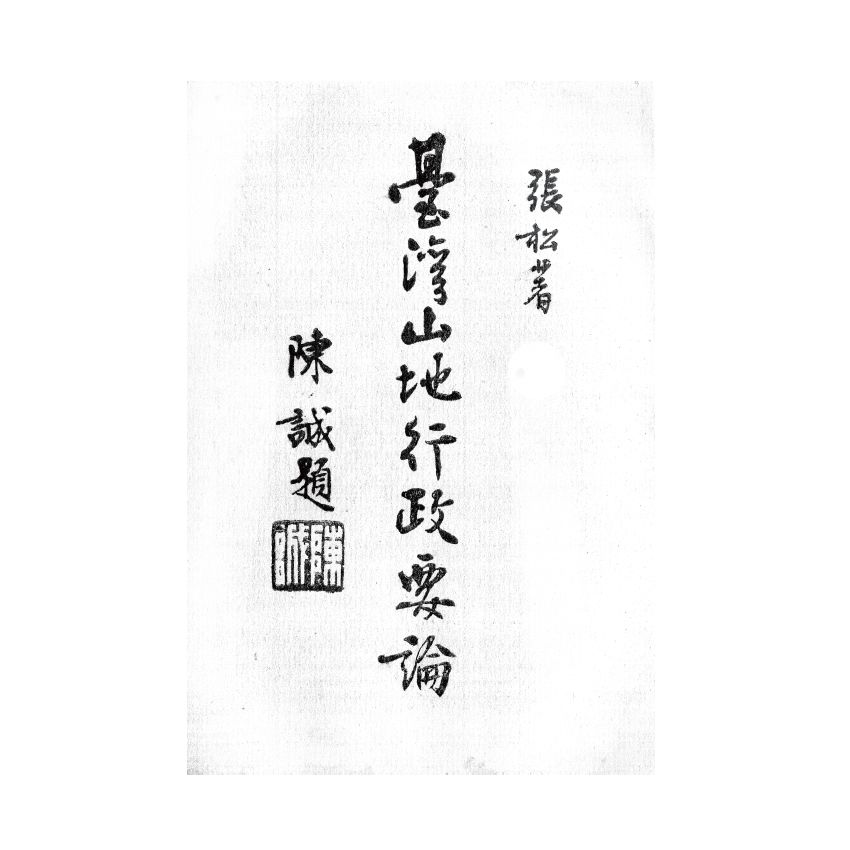 張松著
臺灣山地行政要論
陳誠題
陳誠